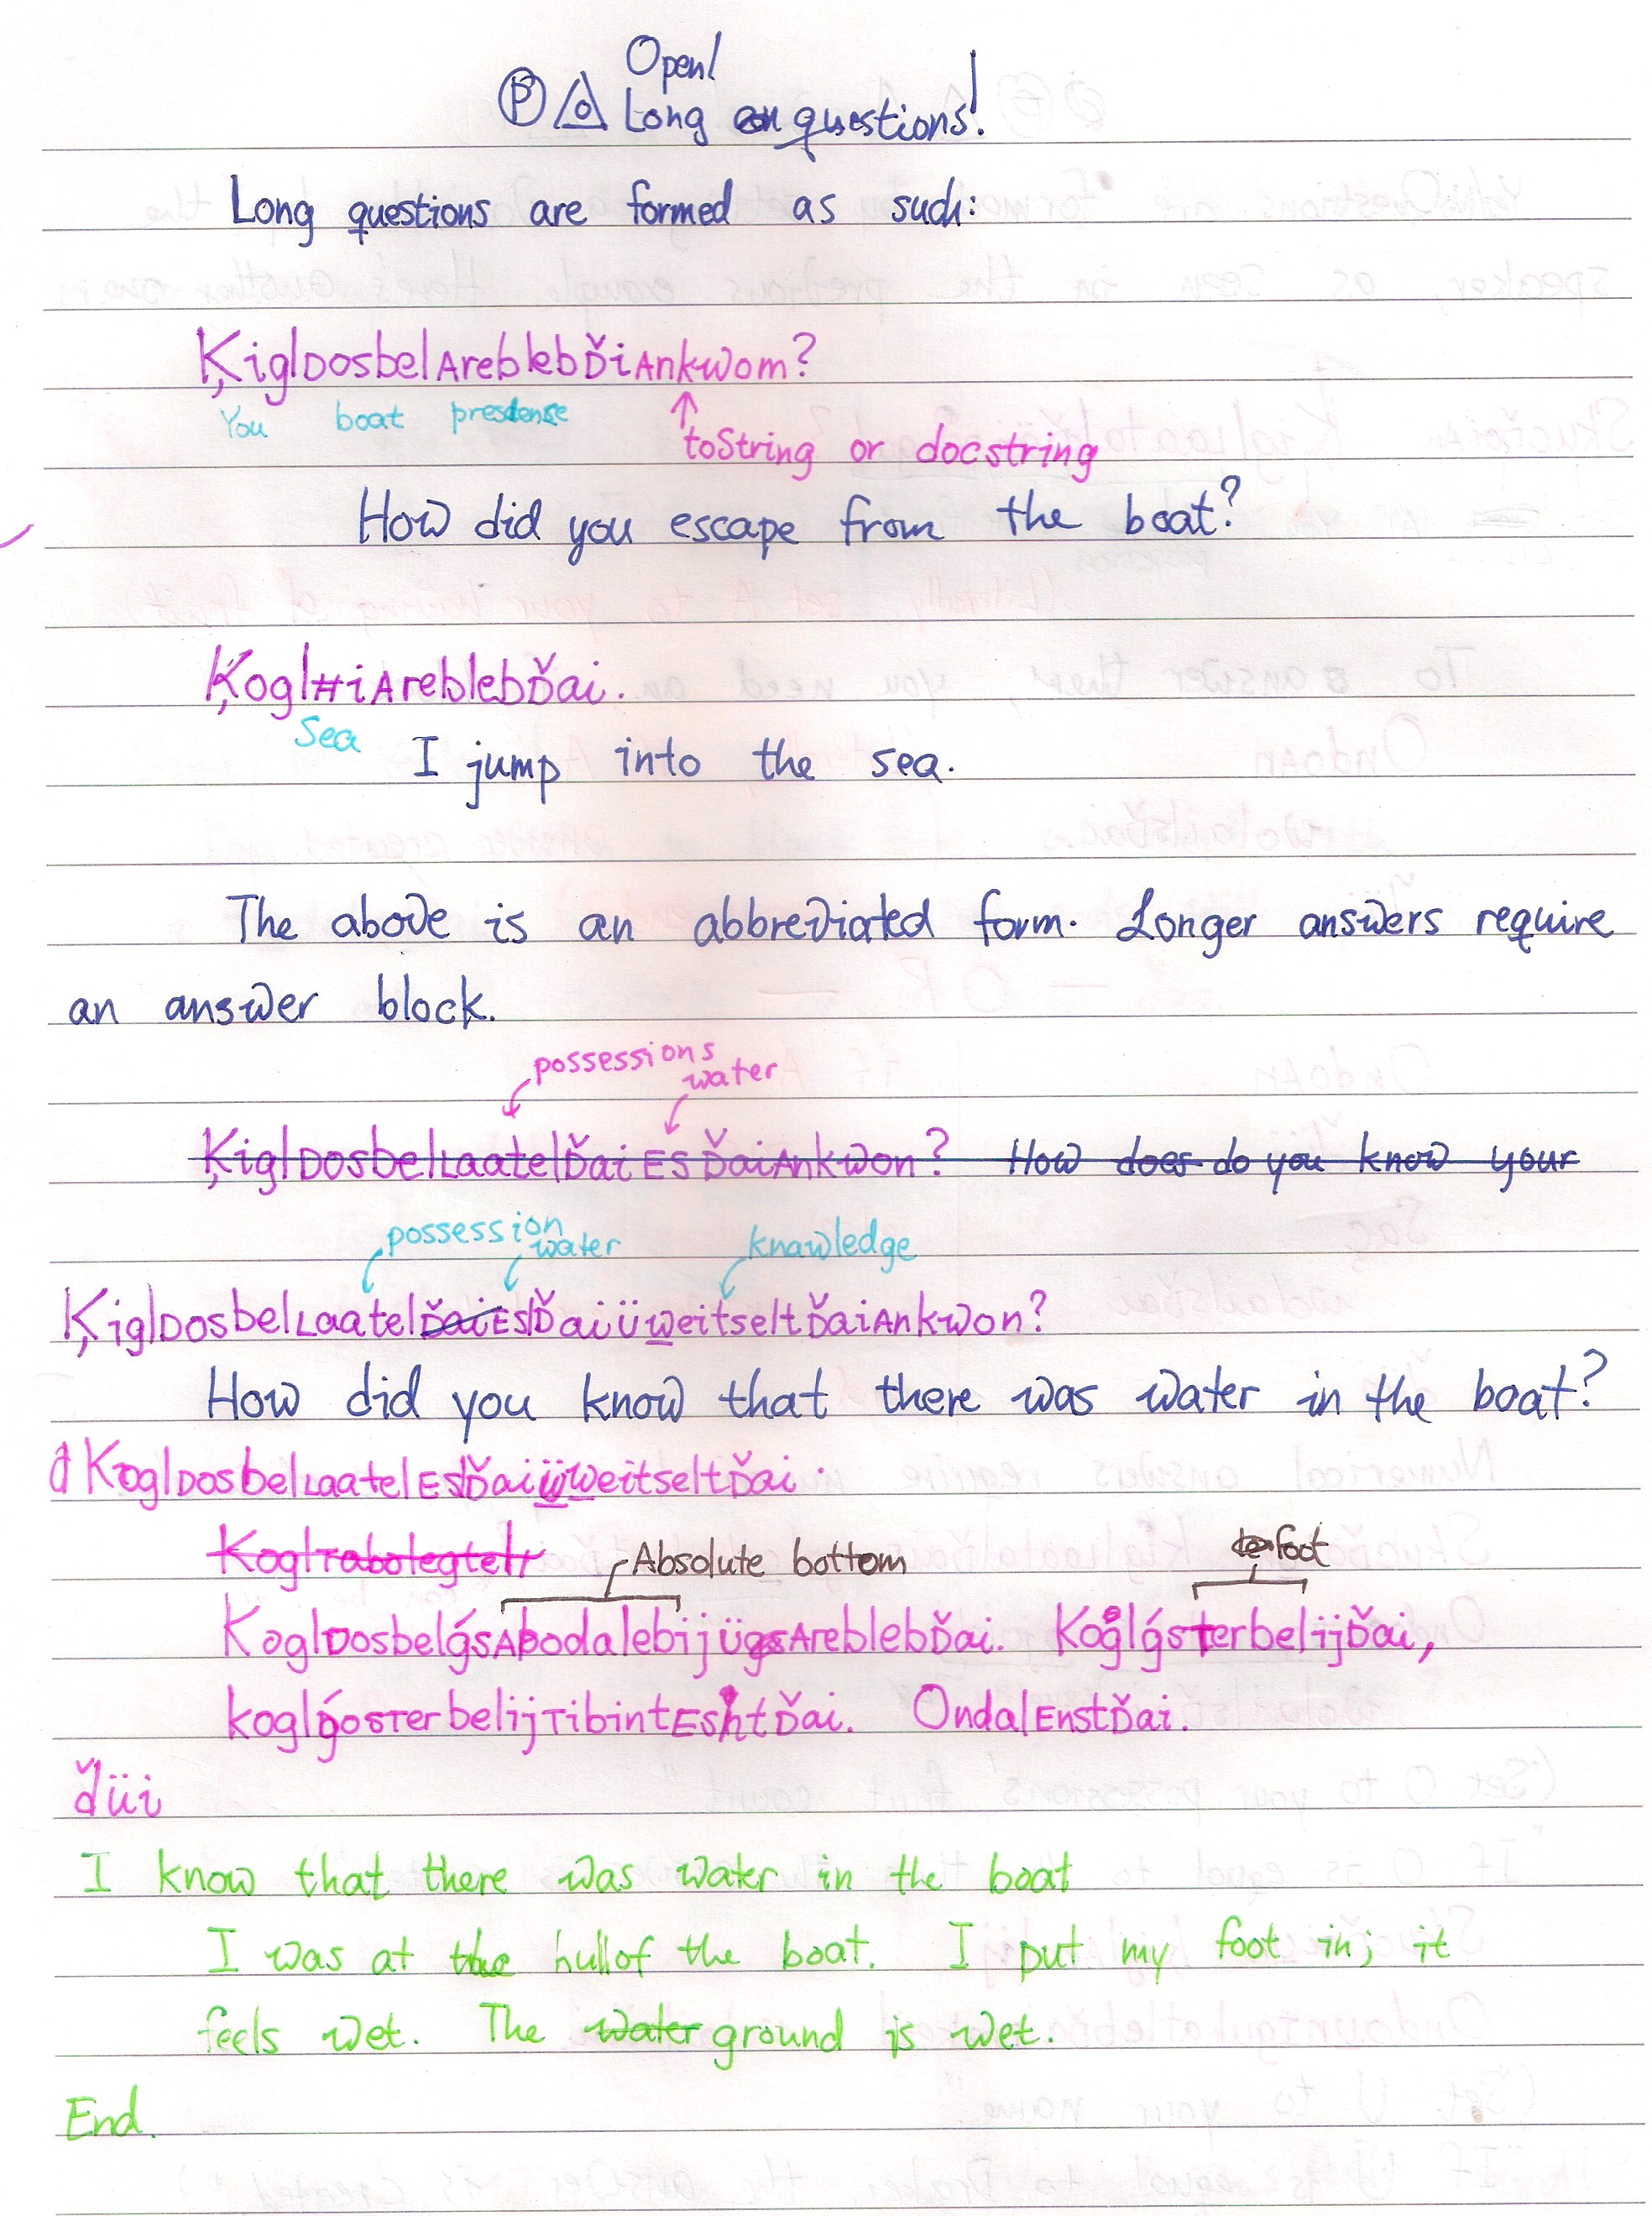 Ⓟ Open/
Long questions!
Long questions are formed as such:
ĶiglDosbelAreblebĎiAnkwom?
You boat presdense
toString or docstring
How did you escape from the boat?
Ķogl#iAreblebĎai.
Sea
I jump into the sea.
The above is an abbreviated form. Longer answers require
an answer block.
possessions
water
ĶiglDosbelLaatelĎaiES ĎaiAnkwon? How does do you know your
possession
water knowledge
ĶiglDosbelLaatelĎaiESlĎaiüweitseltĎaiAnkwon?
How did you know that there was water in the boat?
đKoglDosbelLaatelESlĎaiüweitseltĎai.
KoglTabolegtelr
Absolute bottom foot
KoglDosbelǵsAbodalebijügsAreblebĎai. KoglǵsterbelijĎai,
koglǵosTerbelijTibintEShtĎai. OndalEnstĎai.
ďüi
I know that there was water in the boat
I was at the hull of the boat. I put my foot in; it
feels wet. The water ground is wet.
End.